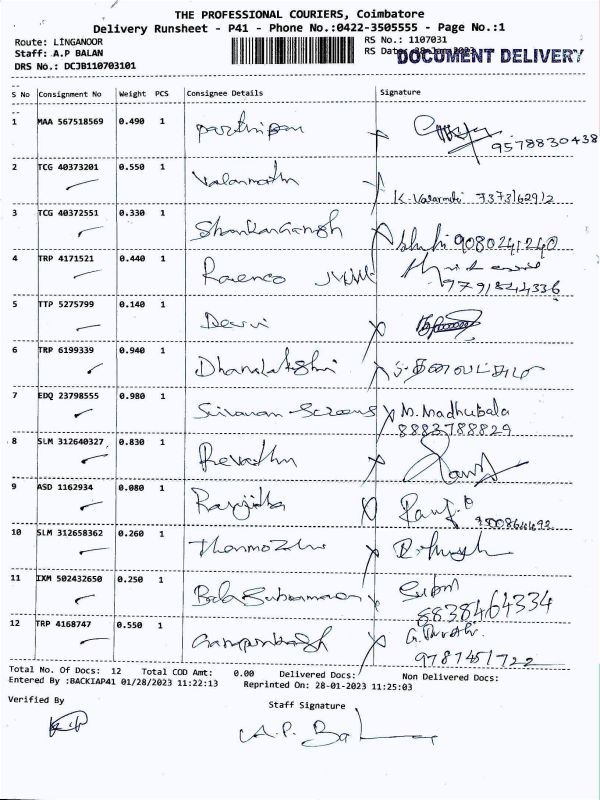 THE PROFESSIONAL COURIERS, Coimbatore
Delivery Runsheet - P41 - Phone No.:0422-3505555 - Page No.:1
Route: LINGANOOR RS No.: 1107031
Staff: A.P BALAN RS Date: 28-Jan-2023
DOCUMENT DELIVERY
DRS No.: DCJB110703101
S No Consignment No Weight PCS Consignee Details Signature
1 MAA 567518569 0.490 1 Parthipan
9578830438
2 TCG 40373201 0.550 1 Valarmathi K. Valarmathi 7373162912
3 TCG 40372551 0.330 1 Shankar Gangh 9080241240
4 TRP 4171521 0.440 1 Raenco
9791844336
5 TTP 5275799 0.140 1 Devi
6 TRP 6199339 0.940 1 Dhanalakshmi
7 EDQ 23798555 0.980 1 Saravanan Screens M. Madhubala
8883788829
8 SLM 312640327 0.830 1 Revathi
9 ASD 1162934 0.080 1 Ranjitha
10 SLM 312658362 0.260 1 Thenmozhi
11 IXM 502432650 0.250 1 Bala Subramanian
8838464334
12 TRP 4168747 0.550 1
9787451722
Total No. Of Docs: 12 Total COD Amt: 0.00 Delivered Docs: Non Delivered Docs:
Entered By :BACKIAP41 01/28/2023 11:22:13 Reprinted On: 28-01-2023 11:25:03
Verified By Staff Signature
A.P. Bal